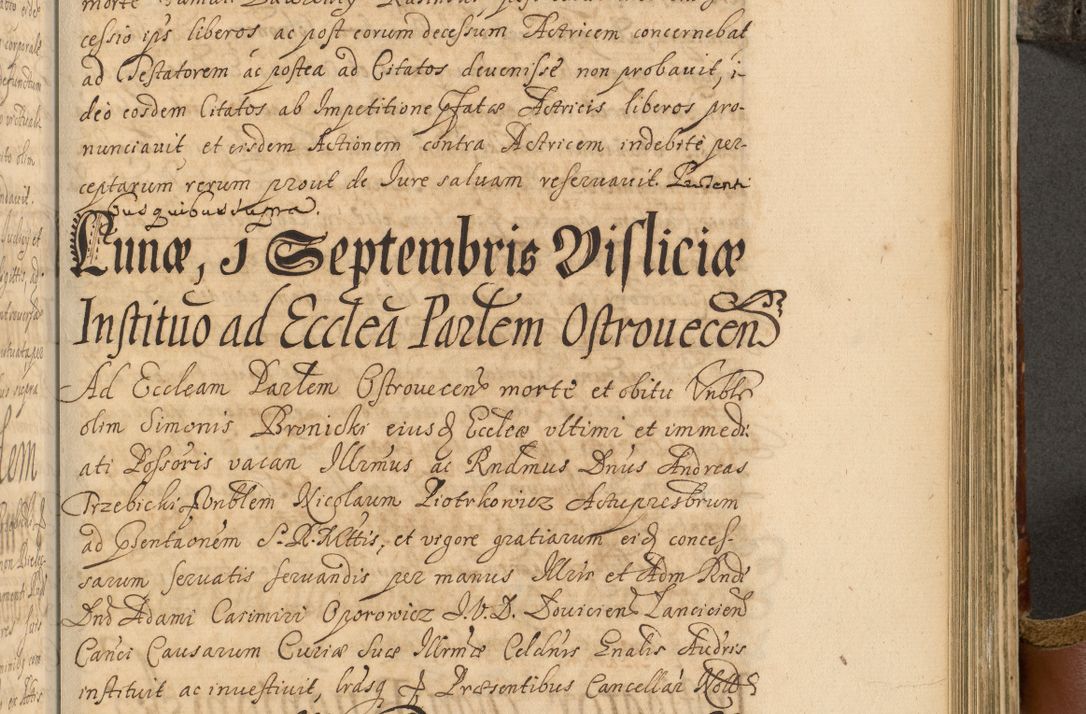 cessio ip̄s liberos ac post eorum decessum Actricem concernebat
ad Testatorem ac postea ad Citatos devenisse non probavit, i-
deo eosdem Citatos ab Impetitione Pfatæ Actricis liberos pro-
nunciavit et eisdem Actionem contra Actricem indebite per-
ceptarum rerum prout de Iure salvam reservavit. Præsenti
bus quibus supra.
Lunæ, 1 Septembris Visliciæ
Institutio ad Eccleā Parlem Ostrovecen̄
Ad Eccleam Parlem Ostrovecen̄ morte et obitu Vnbls
olim Simonis Bronicki eiusd Eccleæ ultimi et immedi
ati Possoris vacan Illrmus ac Rndmus Dnus Andreas
Trzebicki Vnblem Nicolaum Piotrkowicz Actu presbrum
ad Psentaōnem S. R. Mttis, et vigore gratiarum eid conces-
sarum servatis servandis per manus Illris et Adm Rndi
Dnd Adami Casimiri Oporowicz J. V. D. Loviciens Lancicien
Canci Causarum Curiæ suæ Illrmæ Celdnis Gnalis Audris
instituit ac investivit, lrasq Præsentibus Cancellar